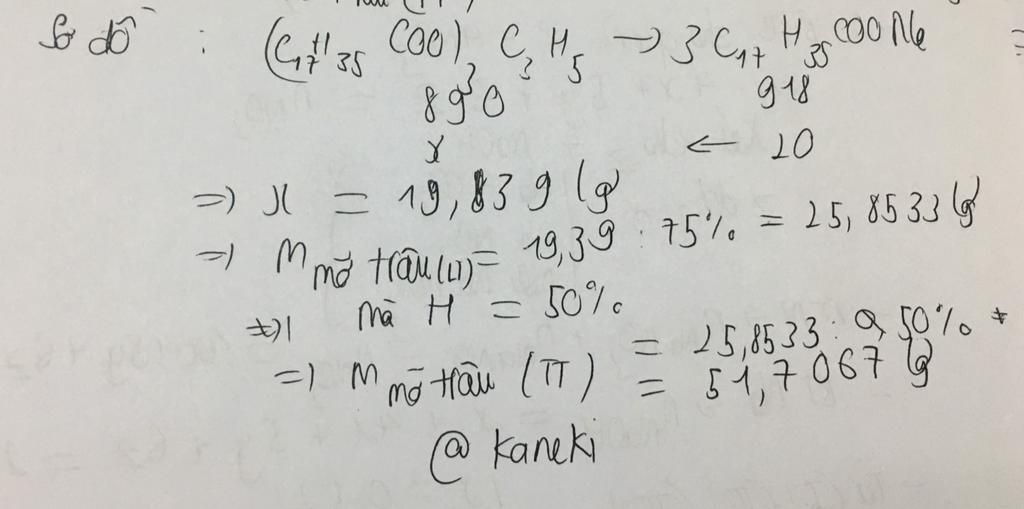 Sơ đồ : (C17H35COO)3C3H5 → 3C17H35COONa
890 918
x ← 20
=) x = 19,39 (g)
=) m mỡ trâu (LT) = 19,39 : 75% = 25,8533 (g)
mà H = 50%
= 25,8533 : 50%
=) m mỡ trâu (TT) = 51,7067 (g)
@ kaneki